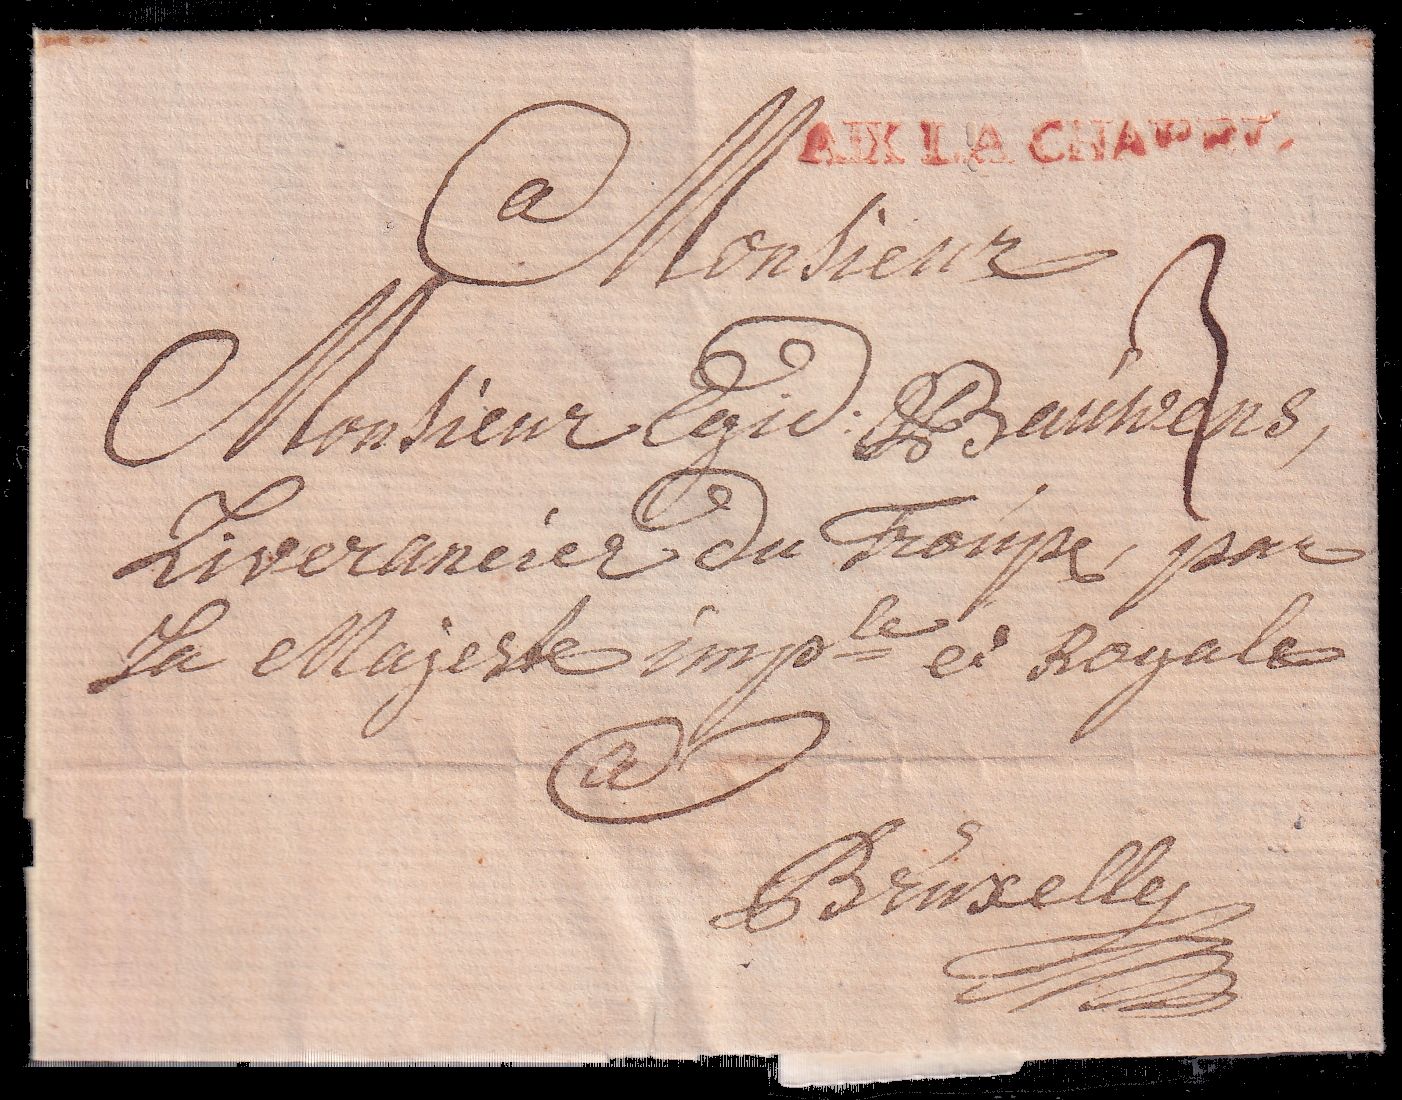 AIX LA CHAPEL.
a Monsieur
3
Monsieur Egid: Bauwens,
Liverancier du Troupe, par
Sa Majeste imp^le et Royale
a
Bruxelles